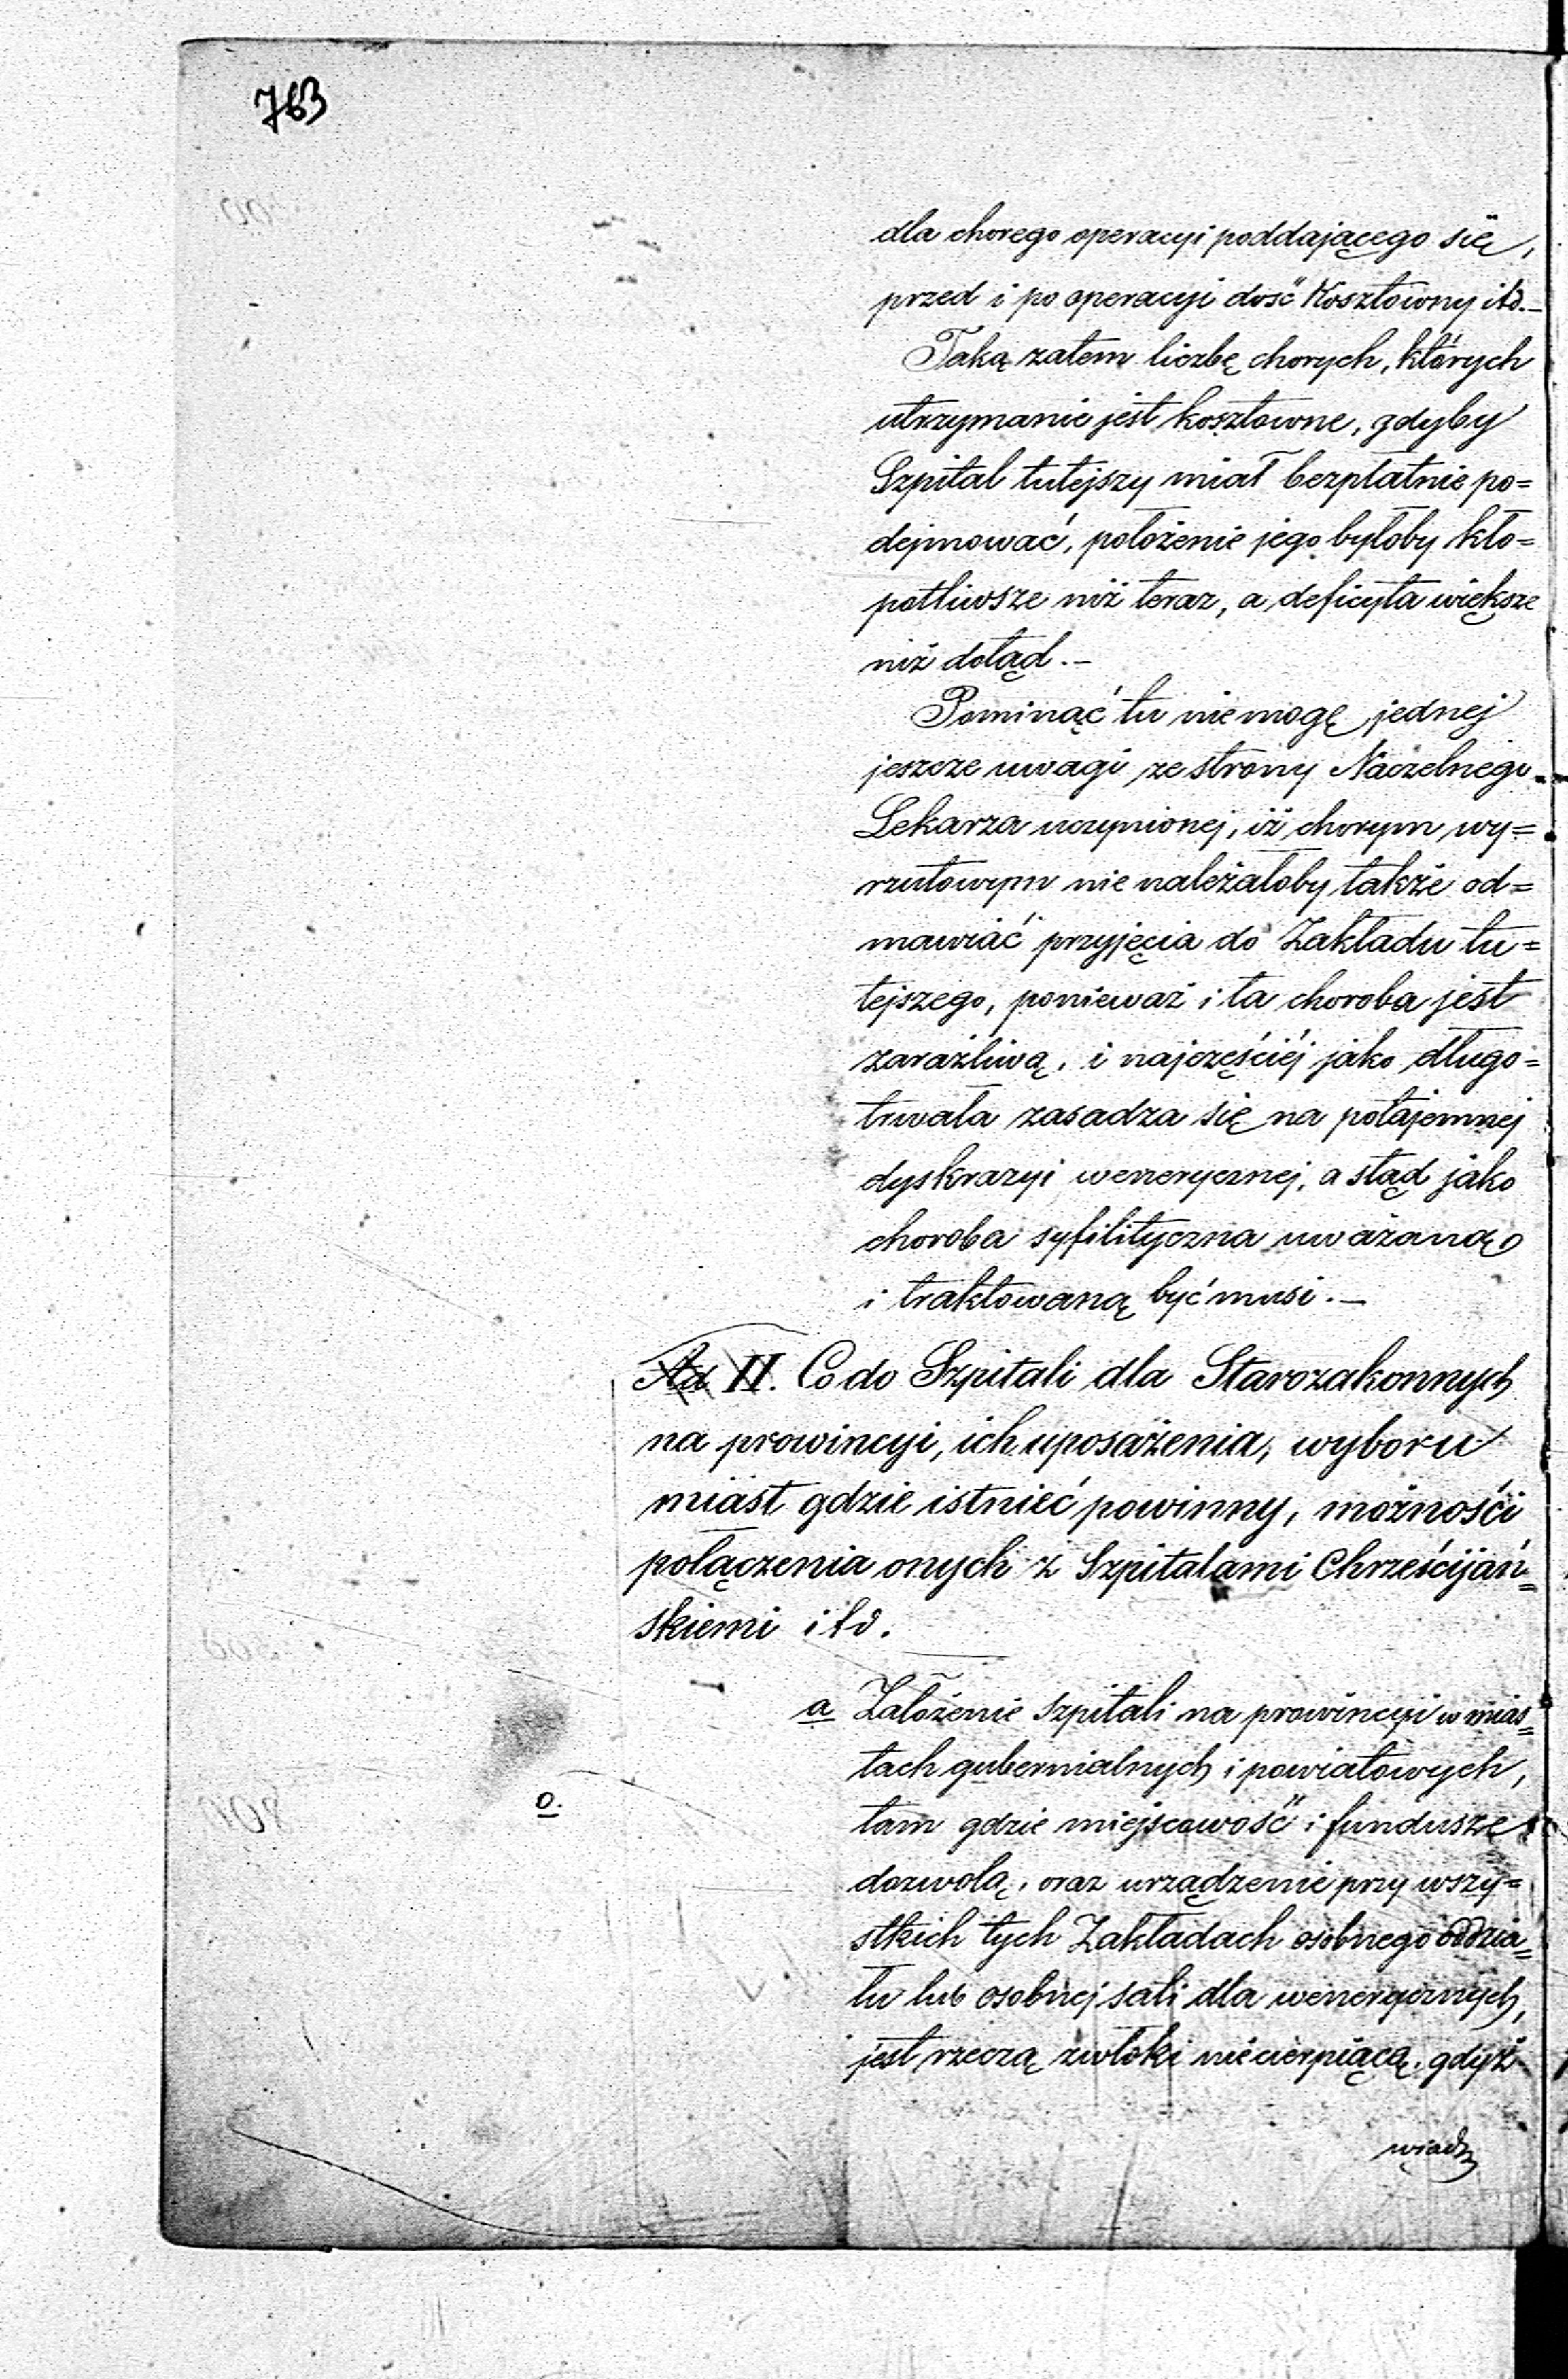 763
dla chorego operacyi poddającego się,
przed i po operacyi dość Kosztowny itd.—
Taką zatem liczbę chorych, których
utrzymanie jest kosztowne, gdyby
Szpital tutejszy miał bezpłatnie po=
dejmować, położenie jego byłoby kło=
potliwsze niż teraz, a deficyta większe
niż dotąd.—
Pominąć tu nie mogę jednej
jeszcze uwagi ze strony Naczelnego
Lekarza uczynionej, iż chorym wy=
rzutowym nie należałoby także od=
mawiać przyjęcia do Zakładu tu=
tejszego, ponieważ i ta choroba jest
zaraźliwą, i najczęściéj jako długo=
trwała zasadza się na potajemnej
dyskrazyi wenerycznej, a stąd jako
choroba syfilityczna uważaną
i traktowaną być musi.—
Ad II. Co do Szpitali dla Starozakonnych
na prowincyi, ich uposażenia, wyboru
miast gdzie istnieć powinny, możności
połączenia onych z Szpitalami Chrześcijań=
skiemi itd.
a Założenie szpitali na prowincyi w mias=
tach gubernialnych i powiatowych,
o.
tam gdzie miejscowość i fundusze
dozwolą, oraz urządzenie przy wszy=
stkich tych Zakładach osobnego oddzia=
łu lub osobnej sali dla wenerycznych,
jest rzeczą zwłoki niecierpiącą, gdyż